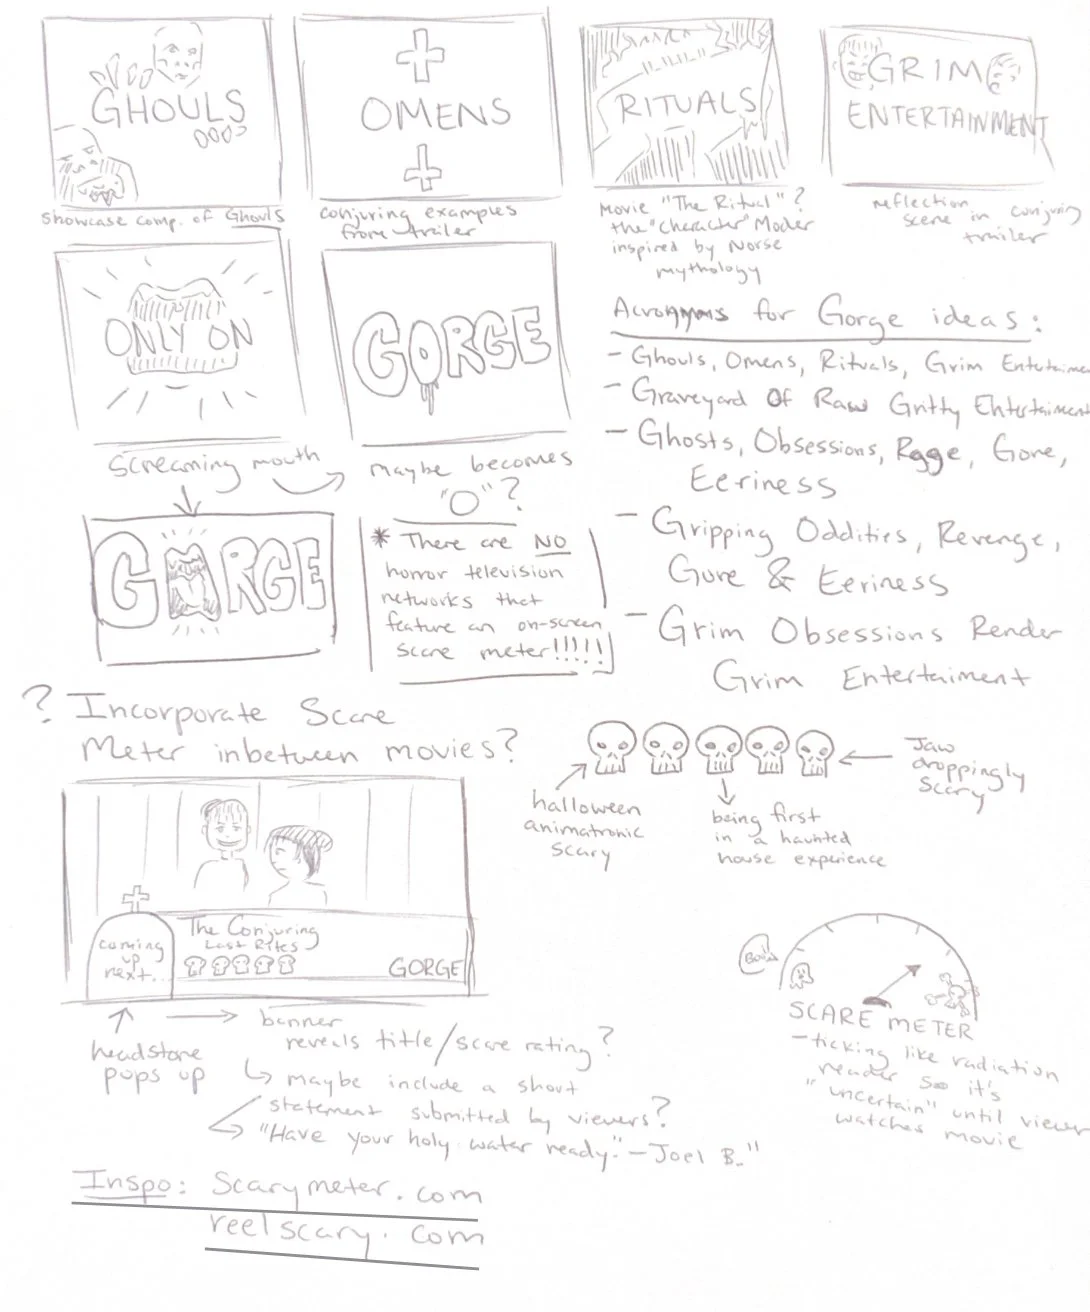 GHOULS
showcase comp. of Ghouls
OMENS
conjuring examples
from trailer
RITUALS
Movie "The Ritual"?
the "character" Moder
inspired by Norse
mythology
GRIM
ENTERTAINMENT
reflection
scene in conjuring
trailer
ONLY ON
screaming mouth
GORGE
maybe becomes
"O"?
GORGE
* There are NO
horror television
networks that
feature an on-screen
scare meter!!!!!
Acronyms for Gorge ideas:
- Ghouls, Omens, Rituals, Grim Entertainme
- Graveyard Of Raw Gritty Entertainment
- Ghosts, Obsessions, Rage, Gore,
Eeriness
- Gripping Oddities, Revenge,
Gore & Eeriness
- Grim Obsessions Render
Grim Entertaiment
? Incorporate Scare
Meter inbetween movies?
halloween
animatronic
scary
being first
in a haunted
house experience
Jaw
droppingly
scary
coming
up
next...
The Conjuring
Last Rites
GORGE
headstone
pops up
banner
reveals title/scare rating?
maybe include a short
statement submitted by viewers?
"Have your holy water ready." - Joel B."
BOO
SCARE METER
- ticking like radiation
reader so it's
"uncertain" until viewer
watches movie
Inspo: Scarymeter.com
reelscary.com